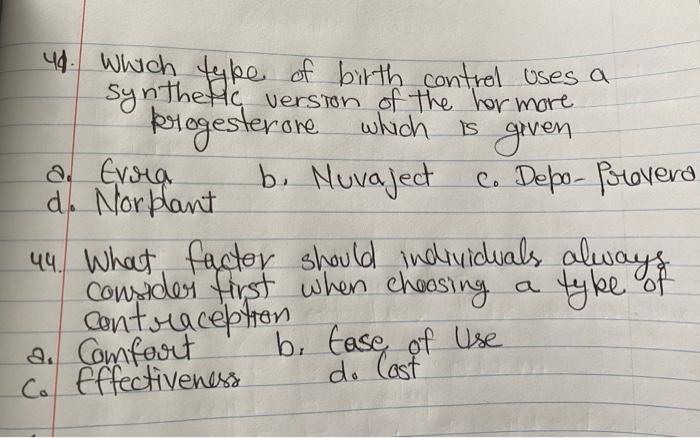 49. Which type of birth control uses a
synthetic version of the hormone
progesterone which is given
a. Evra b. Nuvaject c. Depo-Provera
d. Norplant
44. What factor should individuals always
consider first when choosing a type of
contraception
a. Comfort b. Ease of Use
c. Effectiveness d. Cost